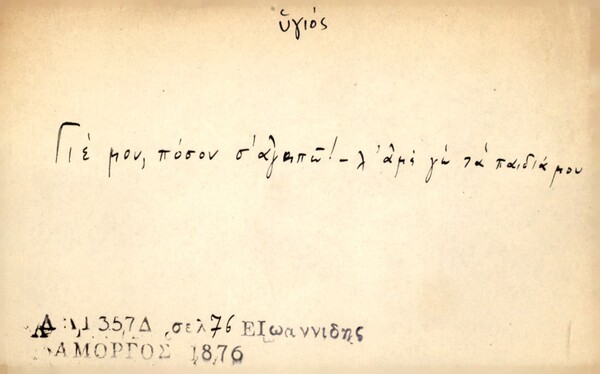 ὑγιός
Γιέ μου, πόσον σ'αγαπῶ! – κ' ἀμέ γώ τά παιδιά μου
ΛΑ 1357Δ σελ 76 ΕΙωαννιδης
ΑΜΟΡΓΟΣ 1876